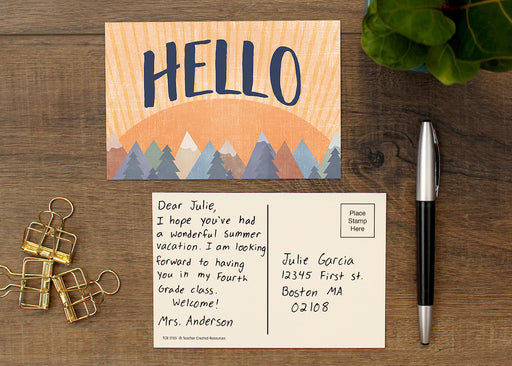 HELLO
Dear Julie,
I hope you've had
a wonderful summer
vacation. I am looking
forward to having
you in my Fourth
Grade class.
Welcome!
Mrs. Anderson
Place
Stamp
Here
Julie Garcia
12345 First St.
Boston MA
02108
© Teacher Created Resources